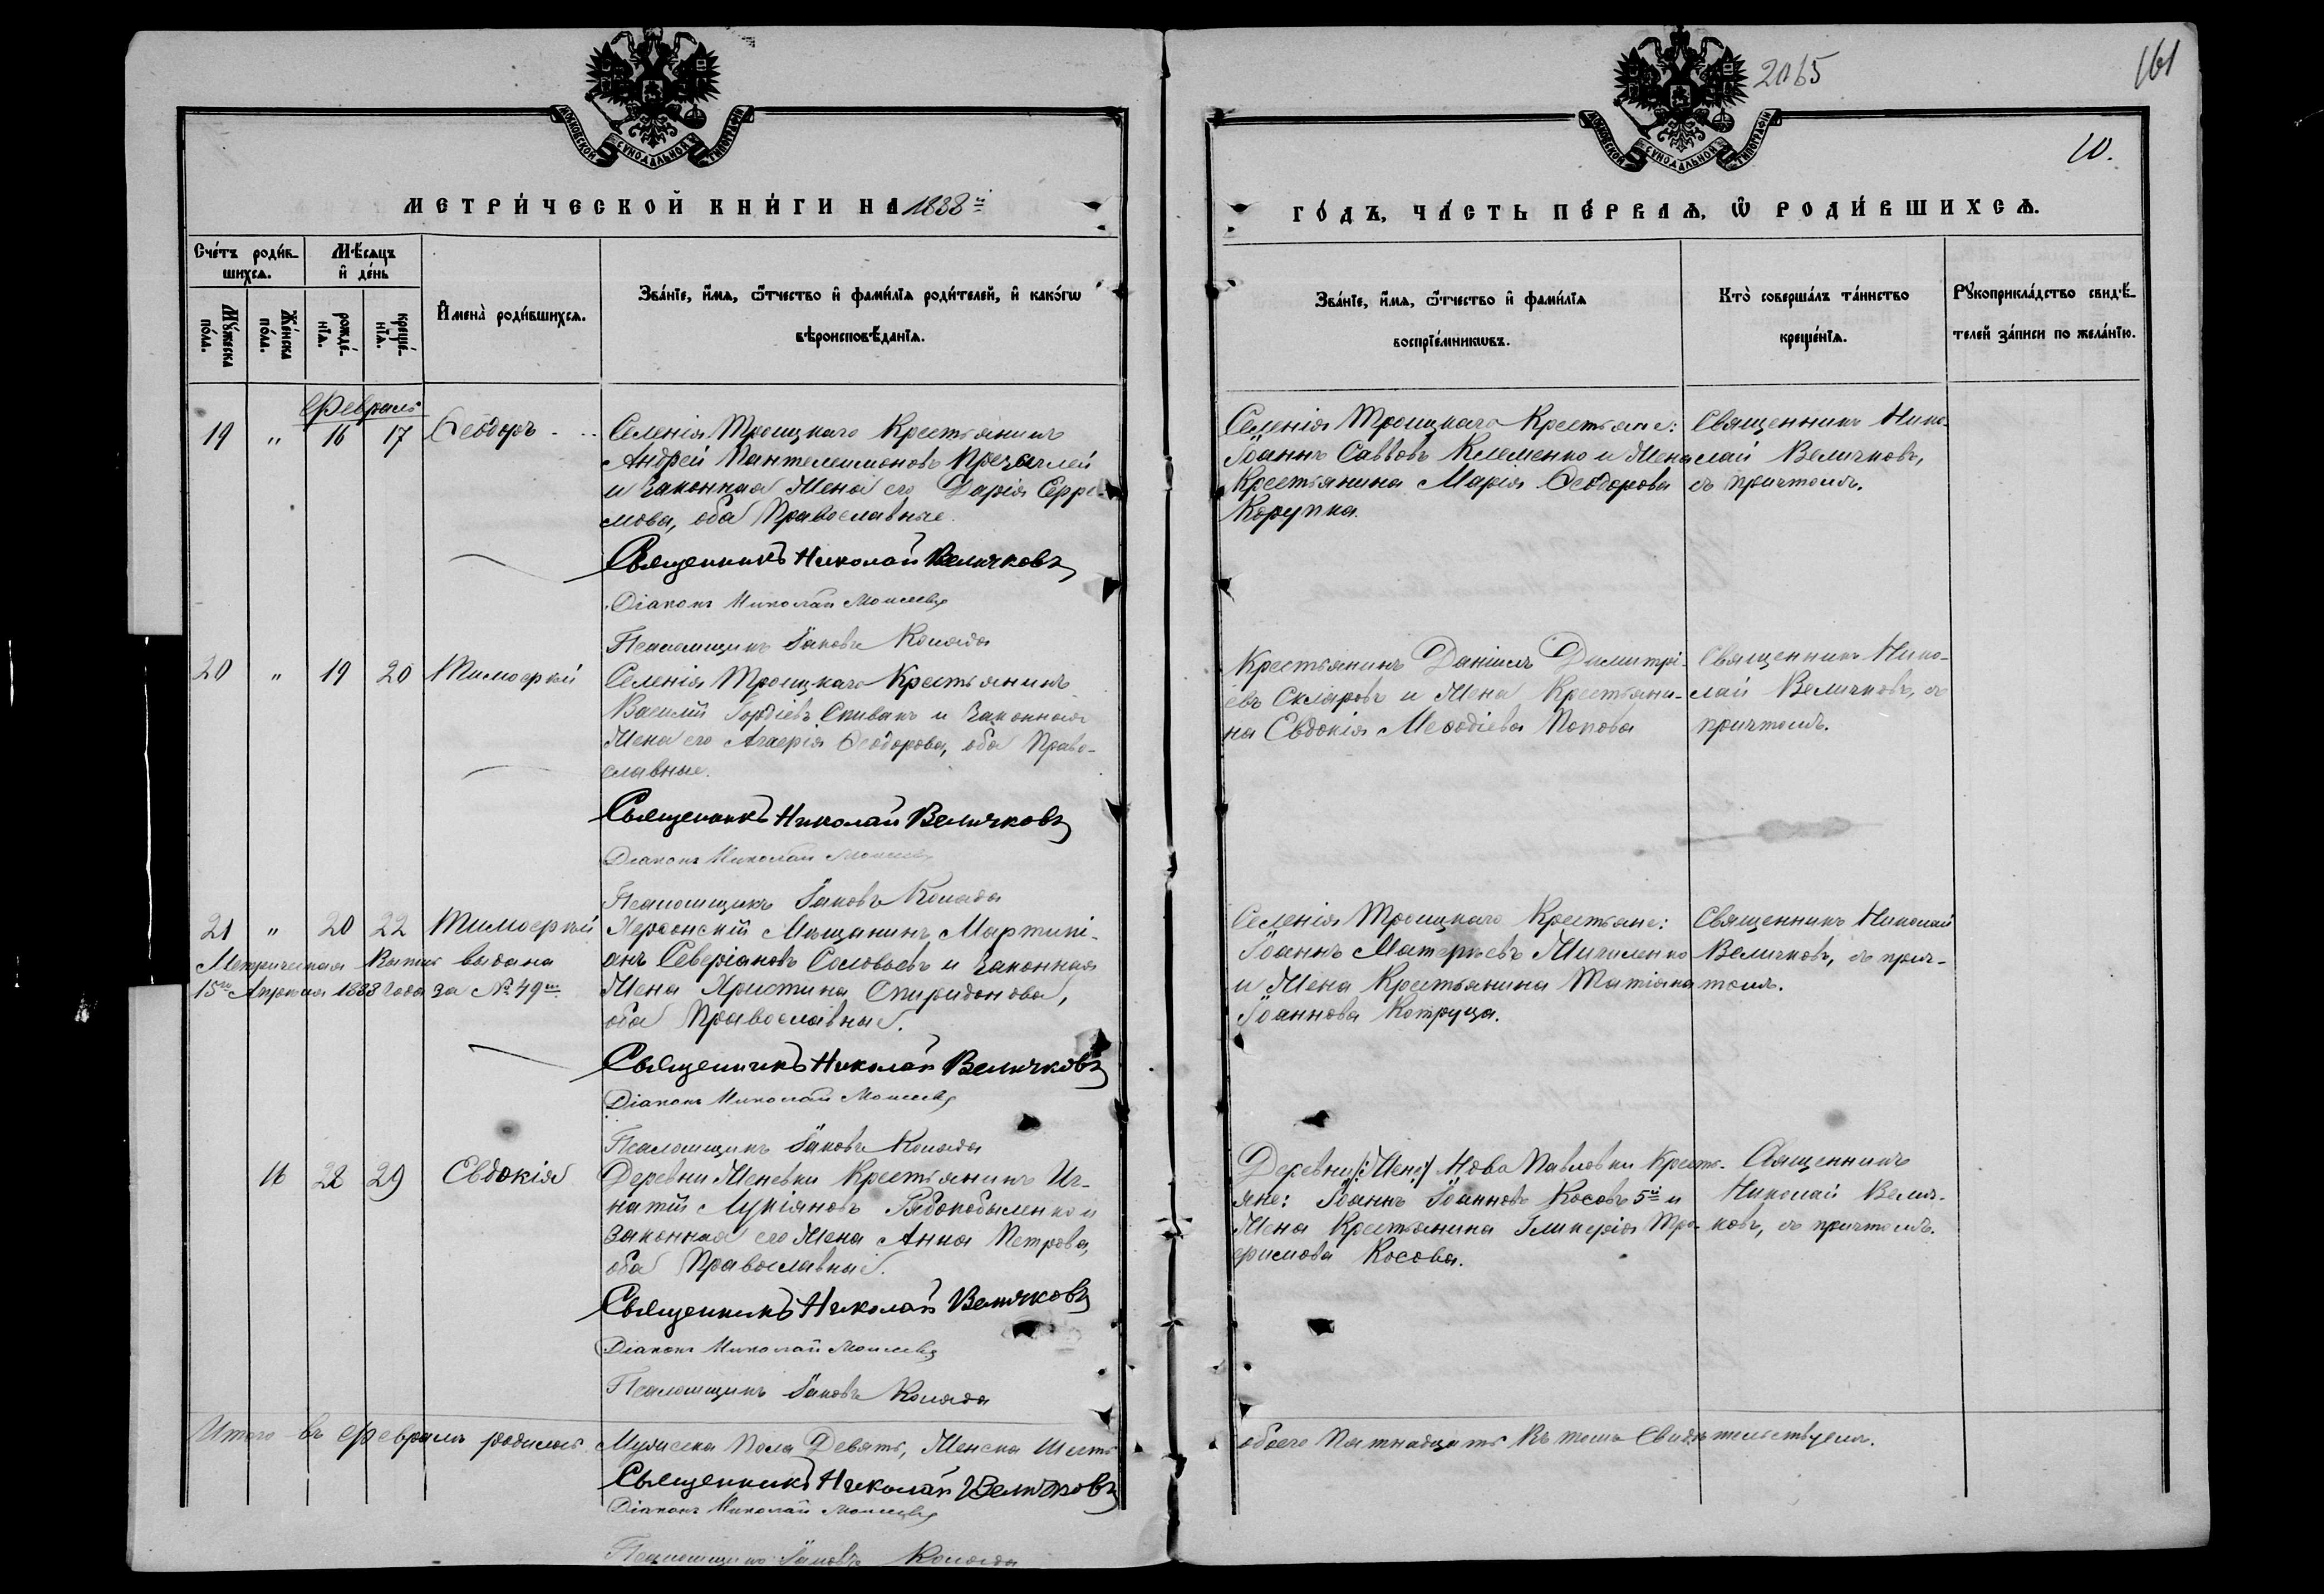 2065
161
10.
МОСКОВСКОЙ СѴНОДАЛЬНОЙ ТИПОГРАФІИ
МОСКОВСКОЙ СѴНОДАЛЬНОЙ ТИПОГРАФІИ
МЕТРИ́ЧЕСКОЙ КНИ́ГИ НА 1888й
ГО́ДЪ, ЧА́СТЬ ПЕ́РВАѦ, Ѡ҆ РОДИ́ВШИХСѦ.
Сче́тъ роди́в-
шихсѧ.
Мѣ́сѧцъ
и҆ де́нь
Мꙋ́жеска
по́ла.
Же́нска
по́ла.
рожде́-
нїѧ.
креще́-
нїѧ.
И҆мена̀ роди́вшихсѧ.
Зва́нїе, и҆́мѧ, ѻ҆́тчество и҆ фами́лїѧ роди́телей, и҆ како́гѡ
вѣроисповѣ́данїѧ.
Зва́нїе, и҆́мѧ, ѻ҆́тчество и҆ фами́лїѧ
воспрїе́мникѡвъ.
Кто̀ соверша́лъ та́инство
креще́нїѧ.
Рꙋкоприкла́дство свидѣ́-
телей за́писи по жела́нїю.
Февраль
19 " 16 17 Ѳеодоръ
Селенія Троицкаго Крестьянинъ
Андрей Пантелеимоновъ
и Законная Жена его Дарія Серге-
мова, оба Православные.
Священникъ Николай Величковъ
Діаконъ Николай Моисеевъ
Псаломщикъ Іаковъ Коляда
Селенія Троицкаго Крестьяне:
Іоаннъ Саввовъ Клименко и Жена
Крестьянина Марія Ѳеодорова
Корупка.
Священникъ Нико-
лай Величковъ,
съ причтомъ.
20 " 19 20 Тимоѳей
Селенія Троицкаго Крестьянинъ
Василій Гордіевъ Спивакъ и Законная
Жена его Агаѳія Ѳеодорова, оба Право-
славные.
Священникъ Николай Величковъ
Діаконъ Николай Моисеевъ
Псаломщикъ Іаковъ Коляда
Крестьянинъ Даніилъ Димитрі-
евъ Скляровъ и Жена Крестьяни-
на Евдокія Меѳодіева Попова
Священникъ Нико-
лай Величковъ, съ
причтомъ.
21 " 20 22 Тимоѳей
Метрическая Выпись выдана
15го Апрѣля 1888 года за № 49м
Херсонскій Мѣщанинъ Мартині-
анъ Северіановъ Соловьевъ и Законная
Жена Христина Спиридонова,
оба Православные.
Священникъ Николай Величковъ
Діаконъ Николай Моисеевъ
Псаломщикъ Іаковъ Коляда
Селенія Троицкаго Крестьяне:
Іоаннъ Матѳеевъ Мигиленко
и Жена Крестьянина Татіана
Іоаннова Котруца.
Священникъ Николай
Величковъ, съ прич-
томъ.
16 28 29 Евдокія
Деревни Женевки Крестьянинъ Иг-
натій Лукіановъ Рябокобыленко и
Законная его Жена Анна Петрова,
оба Православные.
Священникъ Николай Величковъ
Діаконъ Николай Моисеевъ
Псаломщикъ Іаковъ Коляда
Деревни Ново Павловки Кресть-
яне: Іоаннъ Іоанновъ Косовъ 5й и
Жена Крестьянина Гликерія Тро-
фимова Косова.
Священникъ
Николай Велич-
ковъ, съ причтомъ.
Итого въ Февралѣ родилось. Мужеска Пола Девять, Женска Шесть
обоего Пятнадцать Въ томъ Свидѣтельствуемъ.
Священникъ Николай Величковъ
Діаконъ Николай Моисеевъ
Псаломщикъ Іаковъ Коляда